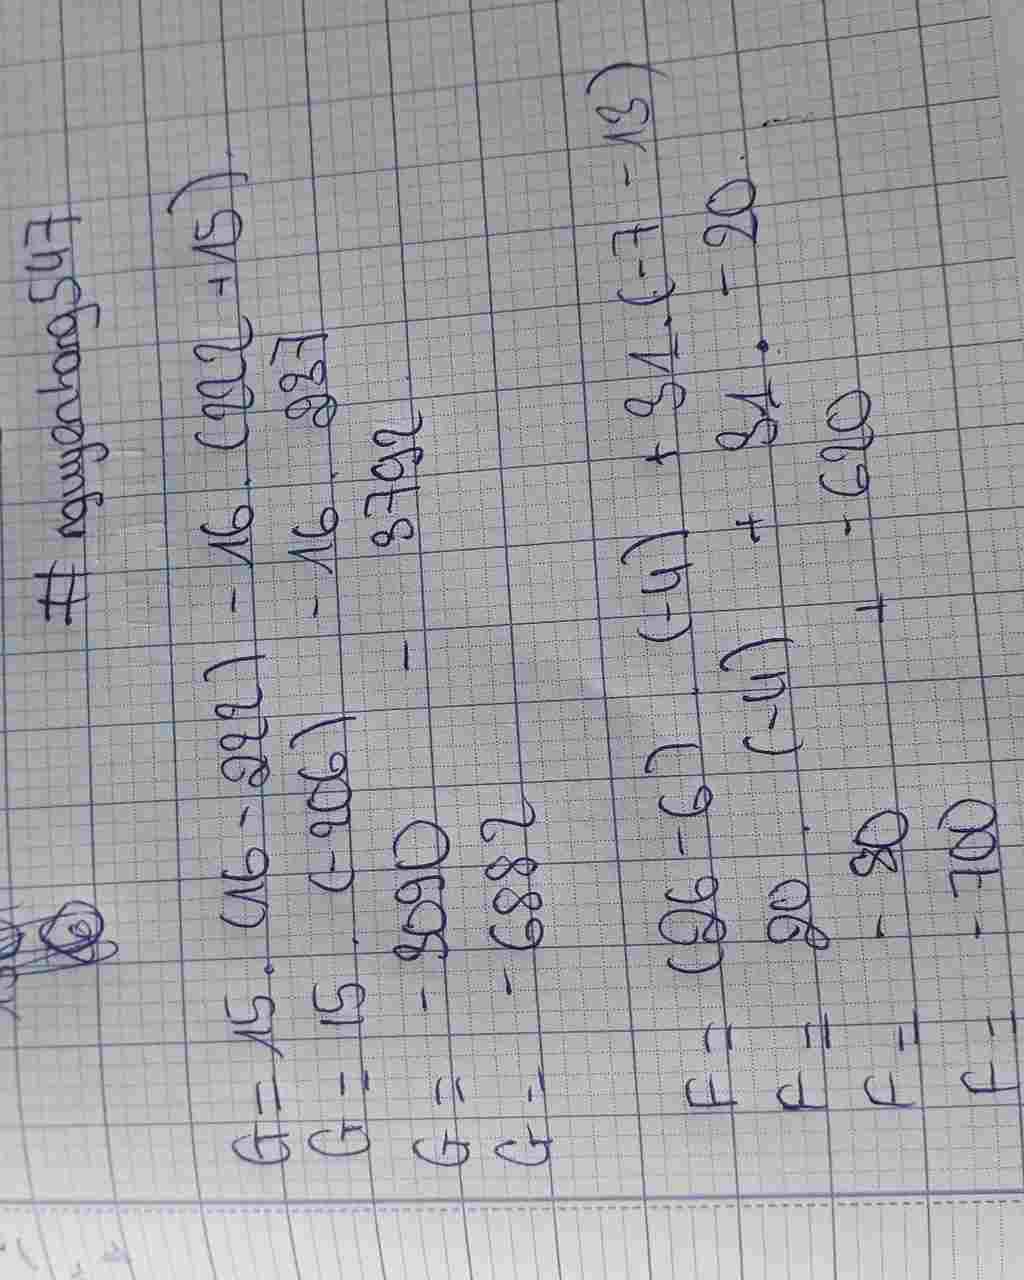 # nguyenhang547
G = 15. (16 - 222) - 16. (222 + 15)
G = 15. (-206) - 16. 237
G = - 3090 - 3792
G = - 6882
F = (26 - 6). (-4) + 31. (-7 - 13)
F = 20. (-4) + 31. - 20.
F = - 80 + - 620
F = - 700